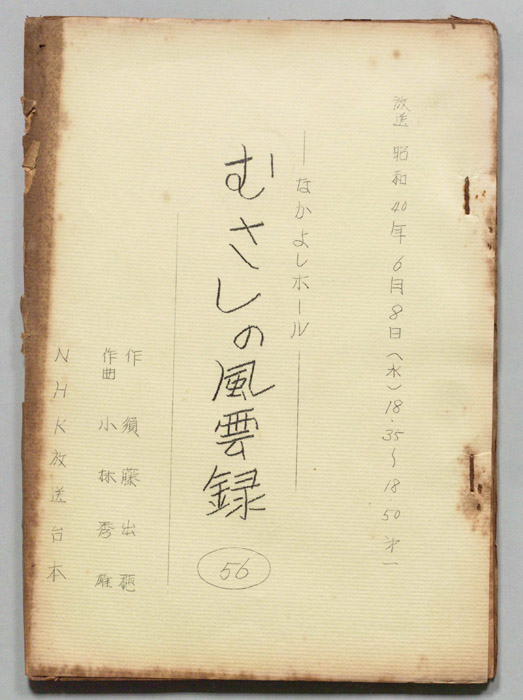 放送 昭和40年6月8日(水)18.35〜18.50 第一
―なかよしホール―
むさしの風雲録
56
作 須藤出穂
作曲 小林秀雄
NHK放送台本